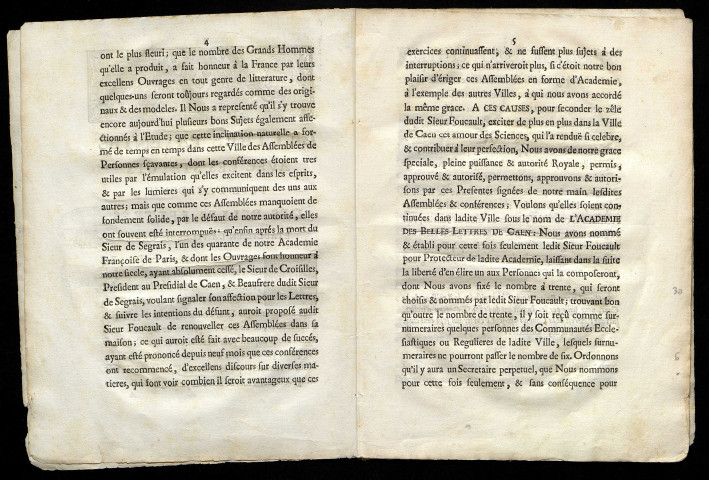 4
ont le plus fleuri; que le nombre des Grands Hommes
qu'elle a produit, a fait honneur à la France par leurs
excellens Ouvrages en tout genre de litterature, dont
quelques-uns seront toûjours regardés comme des origi-
naux & des modeles. Il Nous a representé qu'il s'y trouve
encore aujourd'hui plusieurs bons Sujets également affe-
ctionnés à l'Etude; que cette inclination naturelle a for-
mé de temps en temps dans cette Ville des Assemblées de
Personnes sçavantes, dont les conférences étoient tres
utiles par l'émulation qu'elles excitent dans les esprits,
& par les lumieres qui s'y communiquent des uns aux
autres; mais que comme ces Assemblées manquoient de
fondement solide, par le défaut de notre autorité, elles
ont souvent esté interrompuës; qu'enfin aprés la mort du
Sieur de Segrais, l'un des quarante de notre Academie
Françoise de Paris, & dont les Ouvrages font honneur à
notre siecle, ayant absolument cessé, le Sieur de Croisilles,
President au Presidial de Caen, & Beaufrere dudit Sieur
de Segrais, voulant signaler son affection pour les Lettres,
& suivre les intentions du défunt, auroit proposé audit
Sieur Foucault de renouveller ces Assemblées dans sa
maison; ce qui auroit esté fait avec beaucoup de succés,
ayant esté prononcé depuis neuf mois que ces conférences
ont recommencé, d'excellens discours sur diverses ma-
tieres, qui font voir combien il seroit avantageux que ces
5
exercices continuassent, & ne fussent plus sujets à des
interruptions; ce qui n'arriveroit plus, si c'étoit notre bon
plaisir d'ériger ces Assemblées en forme d'Academie,
à l'exemple des autres Villes, à qui nous avons accordé
la même grace. A CES CAUSES, pour seconder le zéle
dudit Sieur Foucault, exciter de plus en plus dans la Ville
de Caen cet amour des Sciences, qui l'a renduë si celebre,
& contribuer à leur perfection, Nous avons de notre grace
speciale, pleine puissance & autorité Royale, permis,
approuvé & autorisé, permettons, approuvons & autori-
sons par ces Presentes signées de notre main lesdites
Assemblées & conférences; Voulons qu'elles soient con-
tinuées dans ladite Ville sous le nom de L'ACADEMIE
DES BELLES LETTRES DE CAEN: Nous avons nommé
& établi pour cette fois seulement ledit Sieur Foucault
pour Protecteur de ladite Academie, laissant dans la suite
la liberté d'en élire un aux Personnes qui la composeront,
dont Nous avons fixé le nombre à trente, qui seront
choisis & nommés par ledit Sieur Foucault; trouvant bon
qu'outre le nombre de trente, il y soit reçû comme sur-
numeraires quelques personnes des Communautés Eccle-
siastiques ou Regulieres de ladite Ville, lesquels surnu-
meraires ne pourront passer le nombre de six. Ordonnons
qu'il y aura un Secretaire perpetuel, que Nous nommons
pour cette fois seulement, & sans conséquence pour
30
6